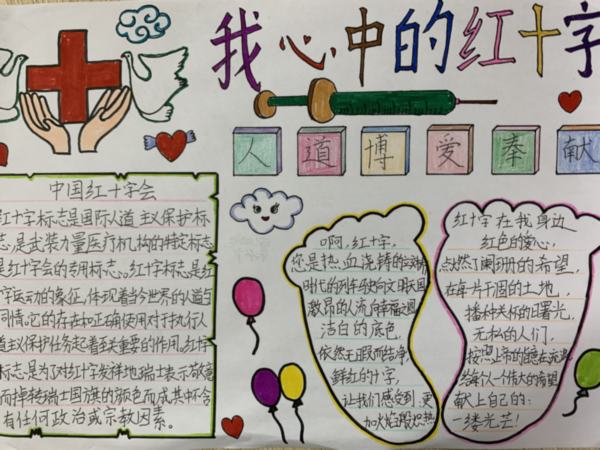 我心中的红十字
人道博爱奉献
中国红十字会
红十字标志是国际人道主义保护标
志,是武装力量医疗机构的特定标志,
是红十字会的专用标志。红十字标志,是红
十字运动的象征,体现着当今世界的人道与
同情。它的存在和正确使用对于执行人
道主义保护任务起着至关重要的作用。红十
标志是为了对红十字发祥地瑞士表示敬意
而掉转瑞士国旗的颜色而成其不含
有任何政治或宗教因素。
啊,红十字,
您是热血浇铸的
时代的列车驶向文明
激昂的人流向幸福
洁白的底色,
依然无瑕而纯净,
鲜红的十字,
让我们感受到,更
加火焰般炽热
红十字在我身边
红色的爱心,
点燃了阑珊的希望,
在每片干涸的土地,
播种关怀的曙光,
无私的人们,
按照上帝的
给每个人伟大的希望
献上自己的:
一缕光芒!